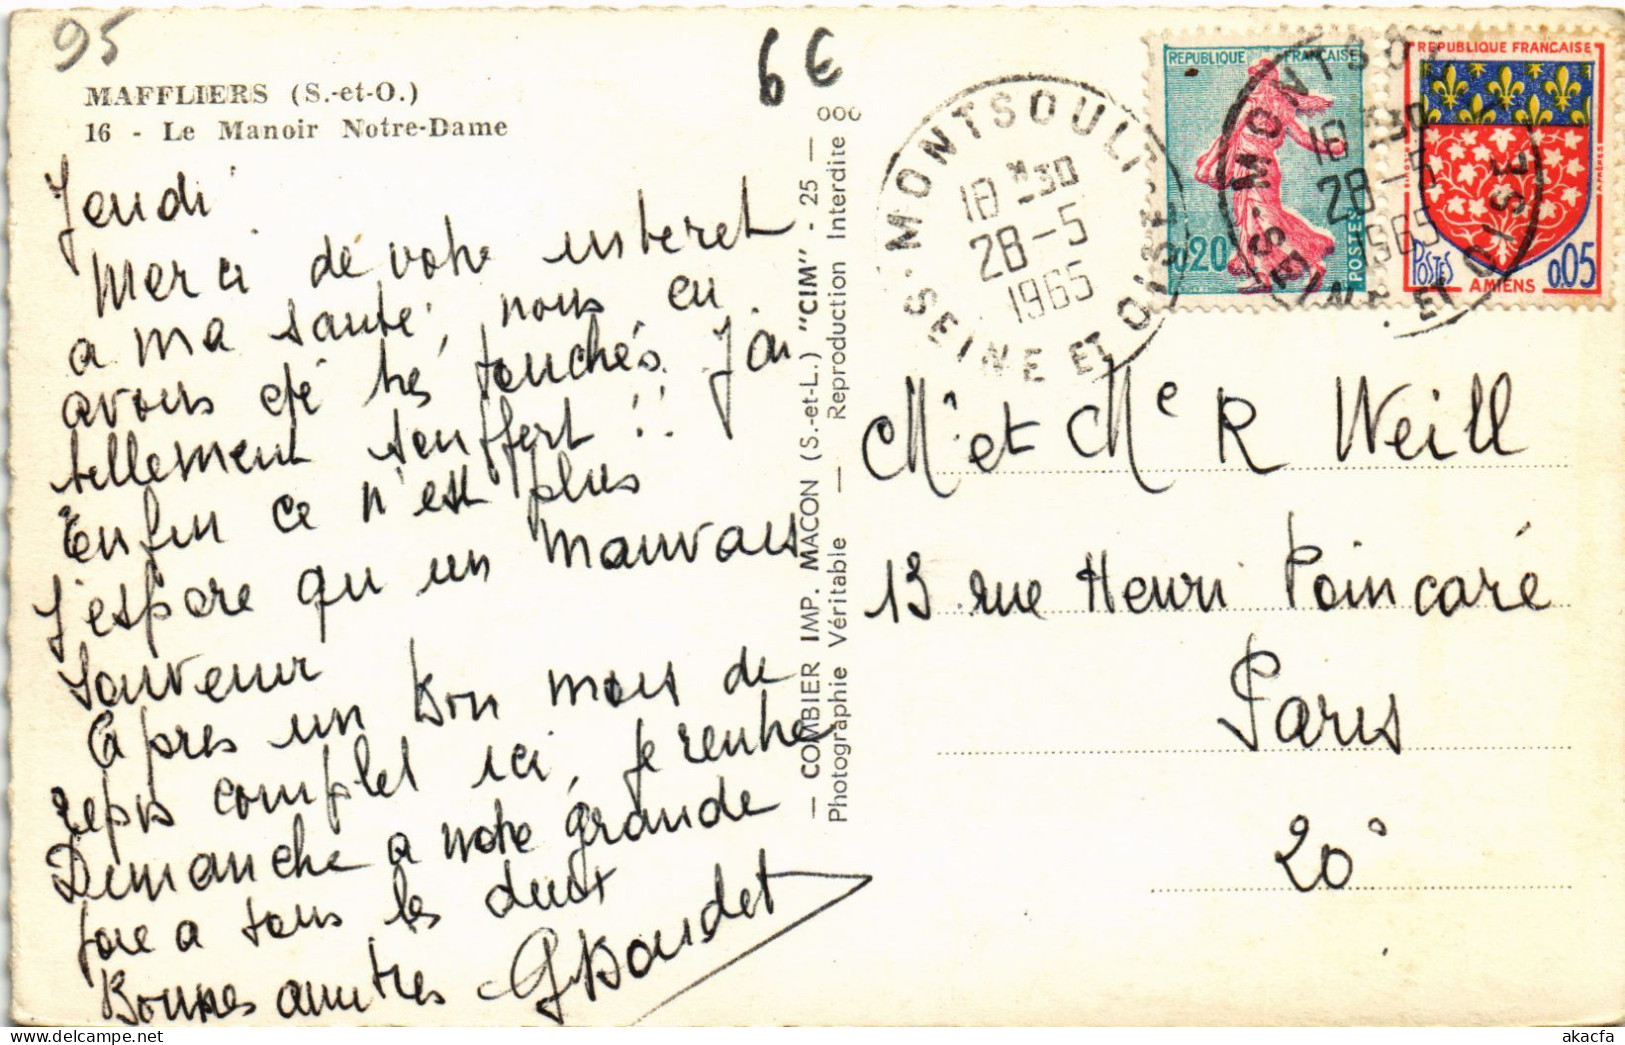 95
6€
MAFFLIERS (S.-et-O.)
16 - Le Manoir Notre-Dame
Jeudi
Merci de votre interet
a ma santé, nous en
avons été très touchés. J'ai
tellement souffert !!
Enfin ce n'est plus
J'espère qu'un mauvais
souvenir
Après un bon mois de
repos complet ici, je rentre
Dimanche a notre grande
joie a tous les deux
Bonnes amitiés GBaudet
— COMBIER IMP. MACON (S.-et-L.) "CIM" - 25 —
Photographie Véritable — Reproduction Interdite
MONTSOULT
18 H 30
28-5
1965
SEINE ET OISE
REPUBLIQUE FRANÇAISE
0,20
POSTES
REPUBLIQUE FRANÇAISE
POSTES
AMIENS
0,05
MONTSOULT
18 H 30
28-5
1965
SEINE ET OISE
Mr et Me R Weill
13 rue Henri Poincaré
Paris
20°
akacfa